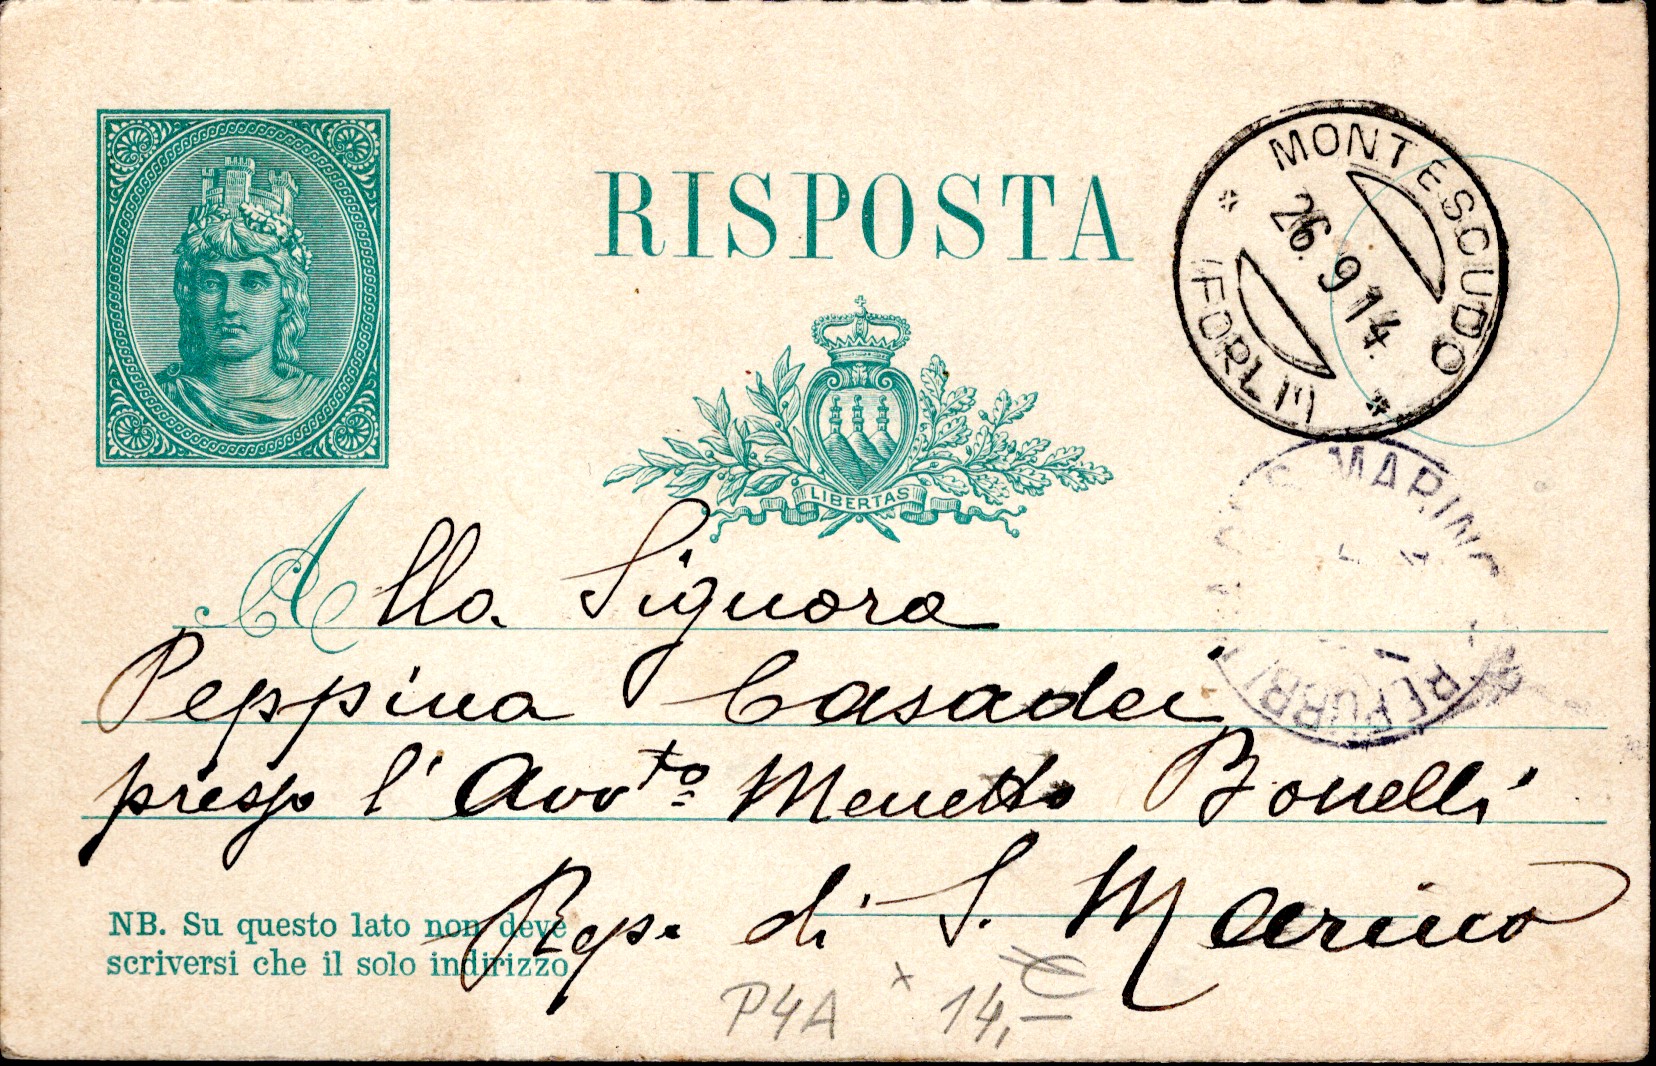 RISPOSTA
MONTESCUDO
26.9 14.
(FORLI)
LIBERTAS
S. MARINO
Alla Signora
Peppina Casadei
presso l'Avv.to Menetto Bonelli
Rep. di S. Marino
NB. Su questo lato non deve
scriversi che il solo indirizzo
P4A x 14,-